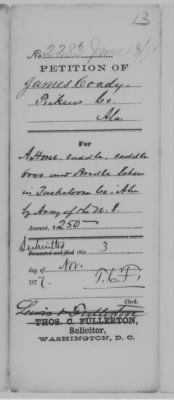 13
No. 2285
PETITION OF
James Coady,
Pickens Co.
Ala.
For
A Horse, saddle, saddle
bags and Bridle taken
in Tuskaloosa Co. Ala
by Army of the U. S.
Amount, $ 250
Submitted
Presented and filed this 3
day of Nov.
1877. T.C.F.,
Clerk.
Lewis & Fullerton
THOS. C. FULLERTON,
Solicitor,
WASHINGTON, D. C.